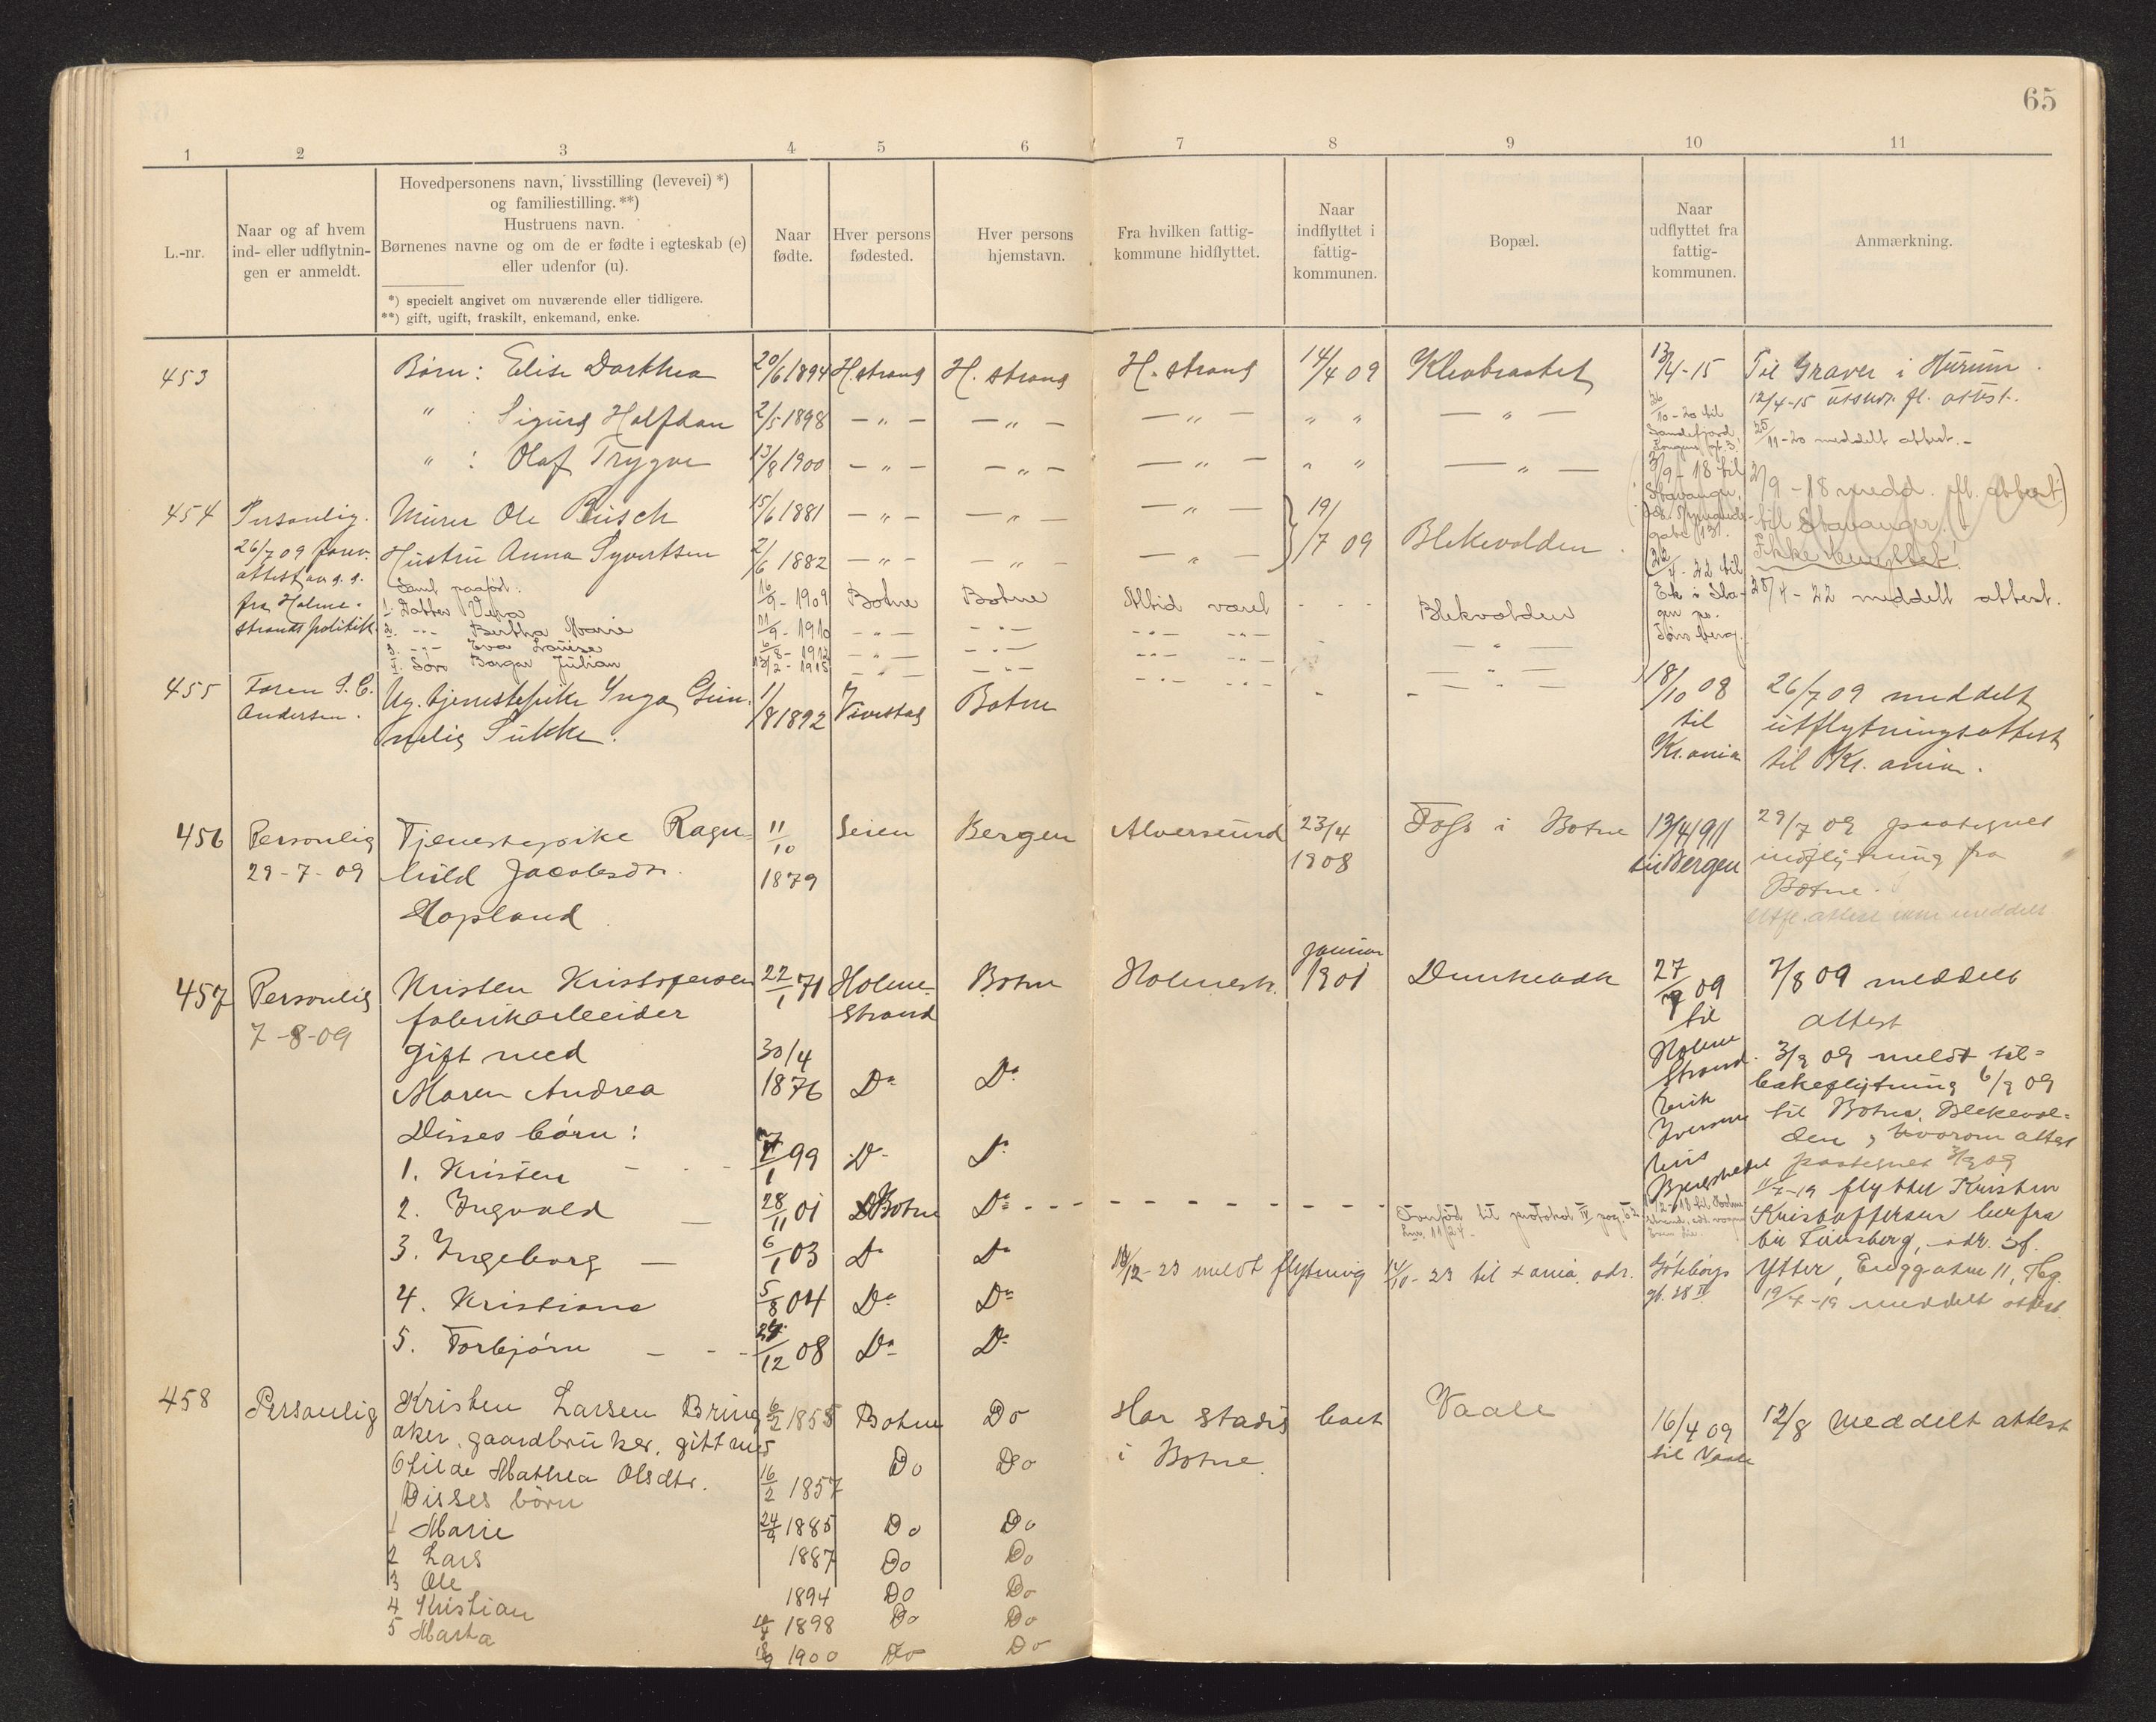 65
1 2 3 4 5 6 7 8 9 10 11
L.-nr.
Naar og af hvem
ind- eller udflytnin-
gen er anmeldt.
Hovedpersonens navn, livsstilling (levevei) *)
og familiestilling. **)
Hustruens navn.
Børnenes navne og om de er fødte i egteskab (e)
eller udenfor (u).
*) specielt angivet om nuværende eller tidligere.
**) gift, ugift, fraskilt, enkemand, enke.
Naar
fødte.
Hver persons
fødested.
Hver persons
hjemstavn.
Fra hvilken fattig-
kommune hidflyttet.
Naar
indflyttet i
fattig-
kommunen.
Bopæl.
Naar
udflyttet fra
fattig-
kommunen.
Anmærkning.
453 Børn: Elise Dorthea 20/6 1894 H.strand H. strand H. strand 14/4 09 13/4-15 Til Graver i Hurum.
12/4-15 utstedt fl. attest.
" : Sigurd Halfdan 2/5 1898 — " — — " — — " — " " — " —
26/10-20 til
Sandefjord
25/11-20 meddelt attest.-
" : Olaf Trygve 13/8 1900 — " — — " — — " — " " — " —
3/9-18 til
Stavanger,
2/9-18 medd. fl. attest
til Stavanger.
Ikke benyttet!
454 Personlig. Murer Ole Busch 15/6 1881 — " — — " — — " — 19/7 09 Blekevolden
26/7 09 forev.
attest av s. d.
fra Holme-
strands politik.
Hustru Anna Syvertsen 2/6 1882 — " — — " — — " —
Samt paafød:
1. Datter Vera 16/9-1909 Botne Botne Altid været - - - Blekvolden
2. -"- Bertha Marie 11/9-1910 - " - - " -
3. -"- Eva Louise 6/8-1912 - " - - " -
4. Søn Borgar Julian 13/2-1915 - " - - " -
22/4-22 til
Ek i Sla-
gen pr.
Tønsberg.
25/4-22 meddelt attest.
455 Foren S. C.
Andersen.
Ug. tjenestepike Inga Gun-
nelie Sukke.
1/8 1892 Vivestad Botne - -
18/10 08
til
Kr.ania
26/7 09 meddelt
utflytningsattest
til Kr. ania.
456 Personlig
29-7-09
Tjenestepike Ragn-
hild Jacobsdtr.
Hopland
11/10
1879
Seien Bergen Alversund 23/4
1908
Foss i Botne 13/4 1911
til Bergen
29/7 09 paategnet
indflytning fra
Botne.
Utfl. attest ikke meddelt
457 Personlig
7-8-09
Kristen Kristofersen
fabrikarbeider
gift med
Maren Andrea
Disses børn:
22/1 71 Holme-
strand
Botne Holmestr. januar
1901
30/4
1876 Do Do
1. Kristen 99 Do Do
2. Ingvald 28/11 01 Botne Do
3. Ingeborg 6/1 03 Do Do
4. Kristiane 5/8 04 Do Do
5. Torbjørn 12 08 Do Do
27/7 09
til
Holme-
strand.
Erik
Iversens
hus
7/8 09 meddelt
attest
3/9 09 meldt til-
bakeflytning 6/9 09
til Botne, Blekevol-
den, hvorom attest
paategnet 3/9 09
11/7-19 flyttet Kristen
Kristoffersen herfra
til Tønsberg, adr. Sf.
Ytter, Enggaten 11, Tbg.
19/7-19 meddelt attest.
Overført til protokol IV pag.
12-23 meldt flytning 14/10-23 til X ania, adr. Göteborg
gt. 28 II
458 Personlig
Kristen Larsen Bring-
aker, gaardbruker, gift med
Otilde Mathea Olsdtr.
Disses børn
6/2 1855 Botne Do Har stadig boet
i Botne.
Vaale 16/4 09
til Vaale
12/8 Meddelt attest
16/2 1857 Do Do
1 Marie 24/9 1885 Do Do
2 Lars 1887 Do Do
3 Ole 1894 Do Do
4 Kristian 1898 Do Do
5 Marta 1900 Do Do